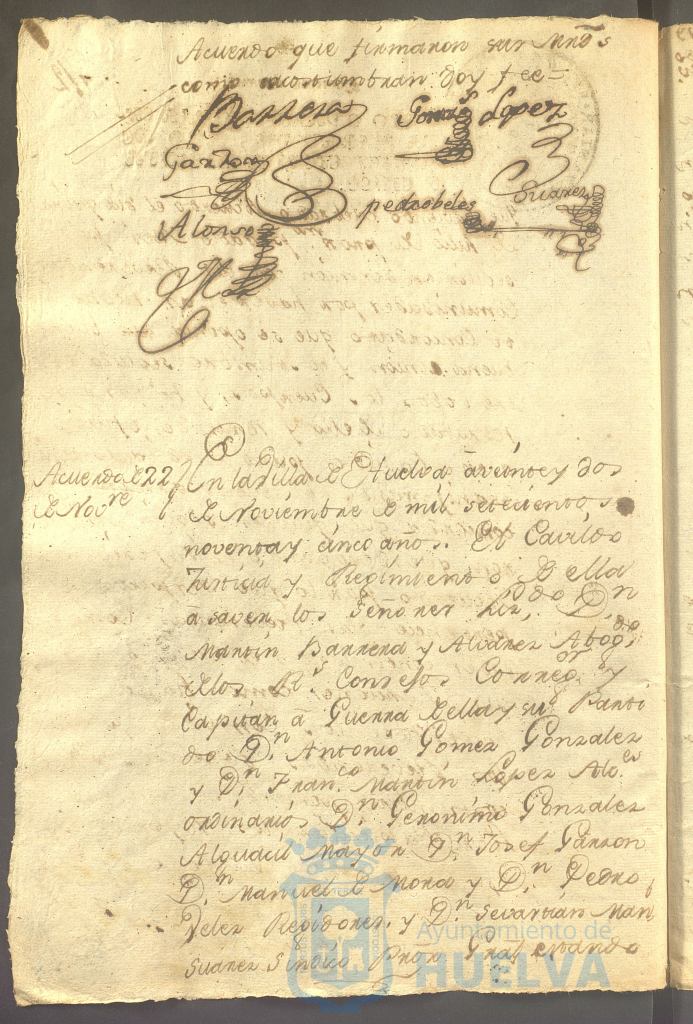 Acuerdo que firmaron sus Mrds
como acostumbran doy fee=
Barrera
Gomez Lopez
Garzon
Suarez
pedro belez
Alonso
Acuerdo de 22
de Novre
En la Villa de Huelva à veinte y dos
de Noviembre de mil setecientos
noventa y cinco años. El Cavildo
Justicia y Regimiento de ella
à saver los señores Lizdo Dn
Martin Barrera y Alvarez Abogdo
de los Rs Consejos Corregor y
Capitan à Guerra de ella y su Parti
do Dn Antonio Gomez Gonzalez
y Dn Franco Martin Lopez Alces
ordinarios Dn Geronimo Gonzalez
Alguacil Mayor Dn Josef Garzon
Dn Manuel de Mora y Dn Pedro
Velez Regidores, y Dn Sevastian Man
Suarez Sindico Pror Gral estando
Ayuntamiento de
HUELVA